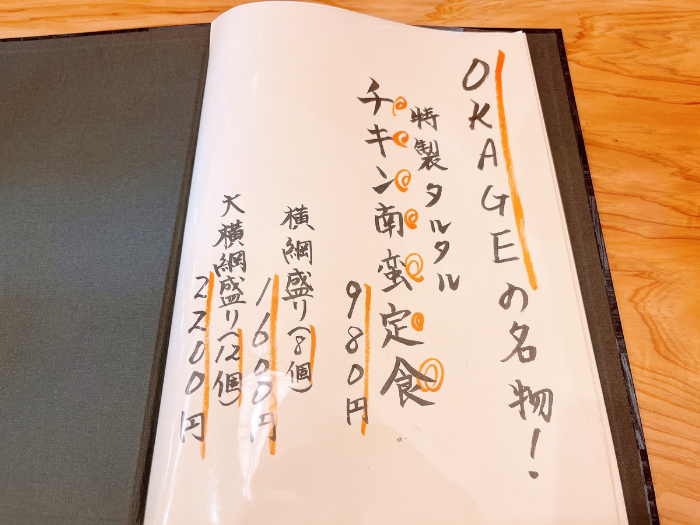 OKAGEの名物!
特製タルタル
チキン南蛮定食
980円
横綱盛り(8個)
1600円
大横綱盛り(12個)
2200円